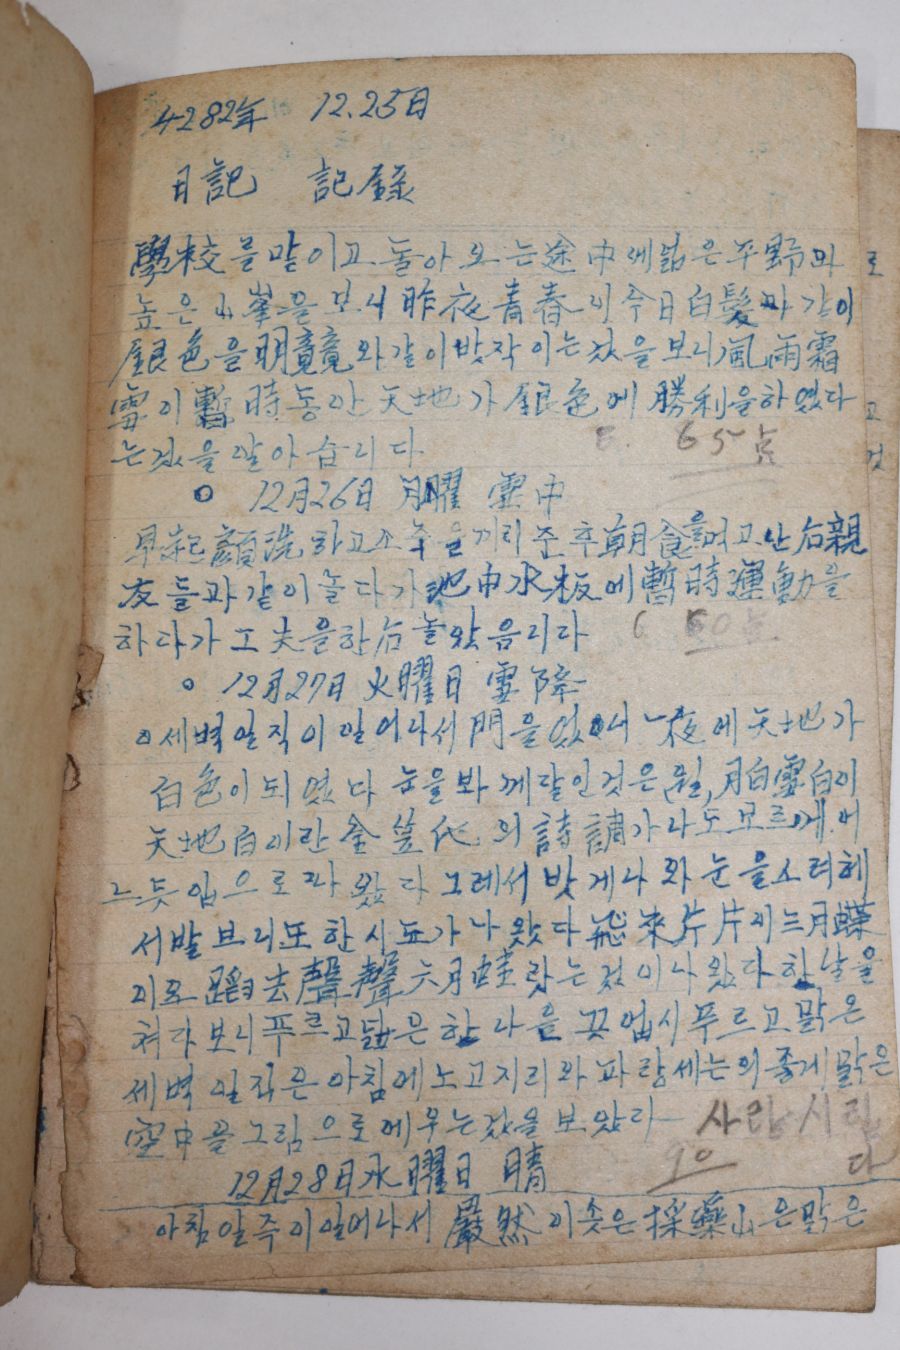 4282年 12.25日
日記 記錄
學校를 맟이고 돌아오는途中에 넓은 平野와
높은 山峯을 보니 昨夜靑春이 今日白髮과 같이
銀色을 明竟竟와 같이 반작이는것을 보니 風雨霜
雪이 暫時동안 天地가 銀色에 勝利을 하였다
는것을 알아습니다
65点
○ 12月26日 月曜 雲中
早起顔洗하고 소죽을 끼리 준 후 朝食을 먹고 난 后 親
友들과 같이 놀다가 池中氷板에 暫時運動을
하다가 工夫을 한 后 놀았음니다
60点
○ 12月27日 火曜日 雪降
○세벽 일직이 일어나서 門을 였으니 一夜에 天地가
白色이 되였다 눈을 봐 께달인것은 月白雪白이
天地白이란 金笠氏의 詩調가 나도모르게 어
느듯 입으로 나왔다 그레서 밧게 나와 눈을 소려헤
서 발브니 또한 시도가 나왔다 飛來片片三月蝶
이로 踏去聲聲六月蛙 랐는것이 나왔다 한날을
처다보니 푸르고 넓은 한나을 끗업시 푸르고 맑은
세벽 일직은 아침에 노고지리와 파랑세는 의좋게 맑은
空中을 그림으로 메우는것을 보왔라
사람 시킨다
90
12月28日 水曜日 晴
아침 일주이 일어나서 嚴然이 솟은 採藥山은 맑은